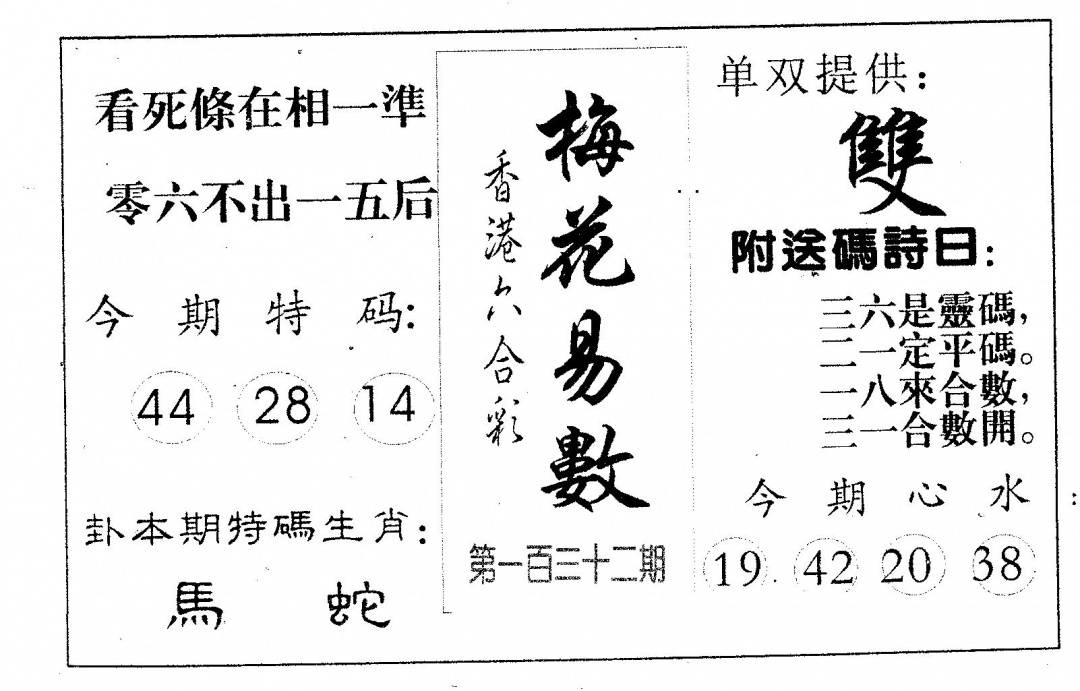 看死條在相一準
零六不出一五后
今期特码:
44 28 14
卦本期特碼生肖:
馬 蛇
梅花易數
香港六合彩
第一百三十二期
单双提供:
雙
附送碼詩曰:
三六是靈碼,
二一定平碼。
一八來合數,
三一合數開。
今期心水:
19 42 20 38